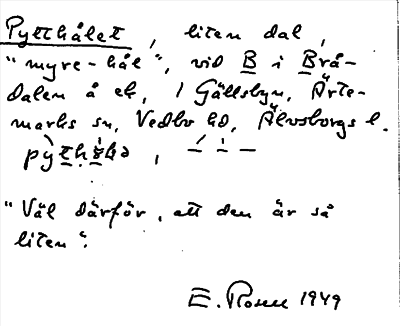 Pytthålet, liten dal,
"myre-hål", vid B i Brå-
dalen å ek, i Gällsbyn, Ärte-
marks sn, Vedbo hd, Älvsborgs l.
"Väl därför, att den är så
liten".
E. Rosen 1949